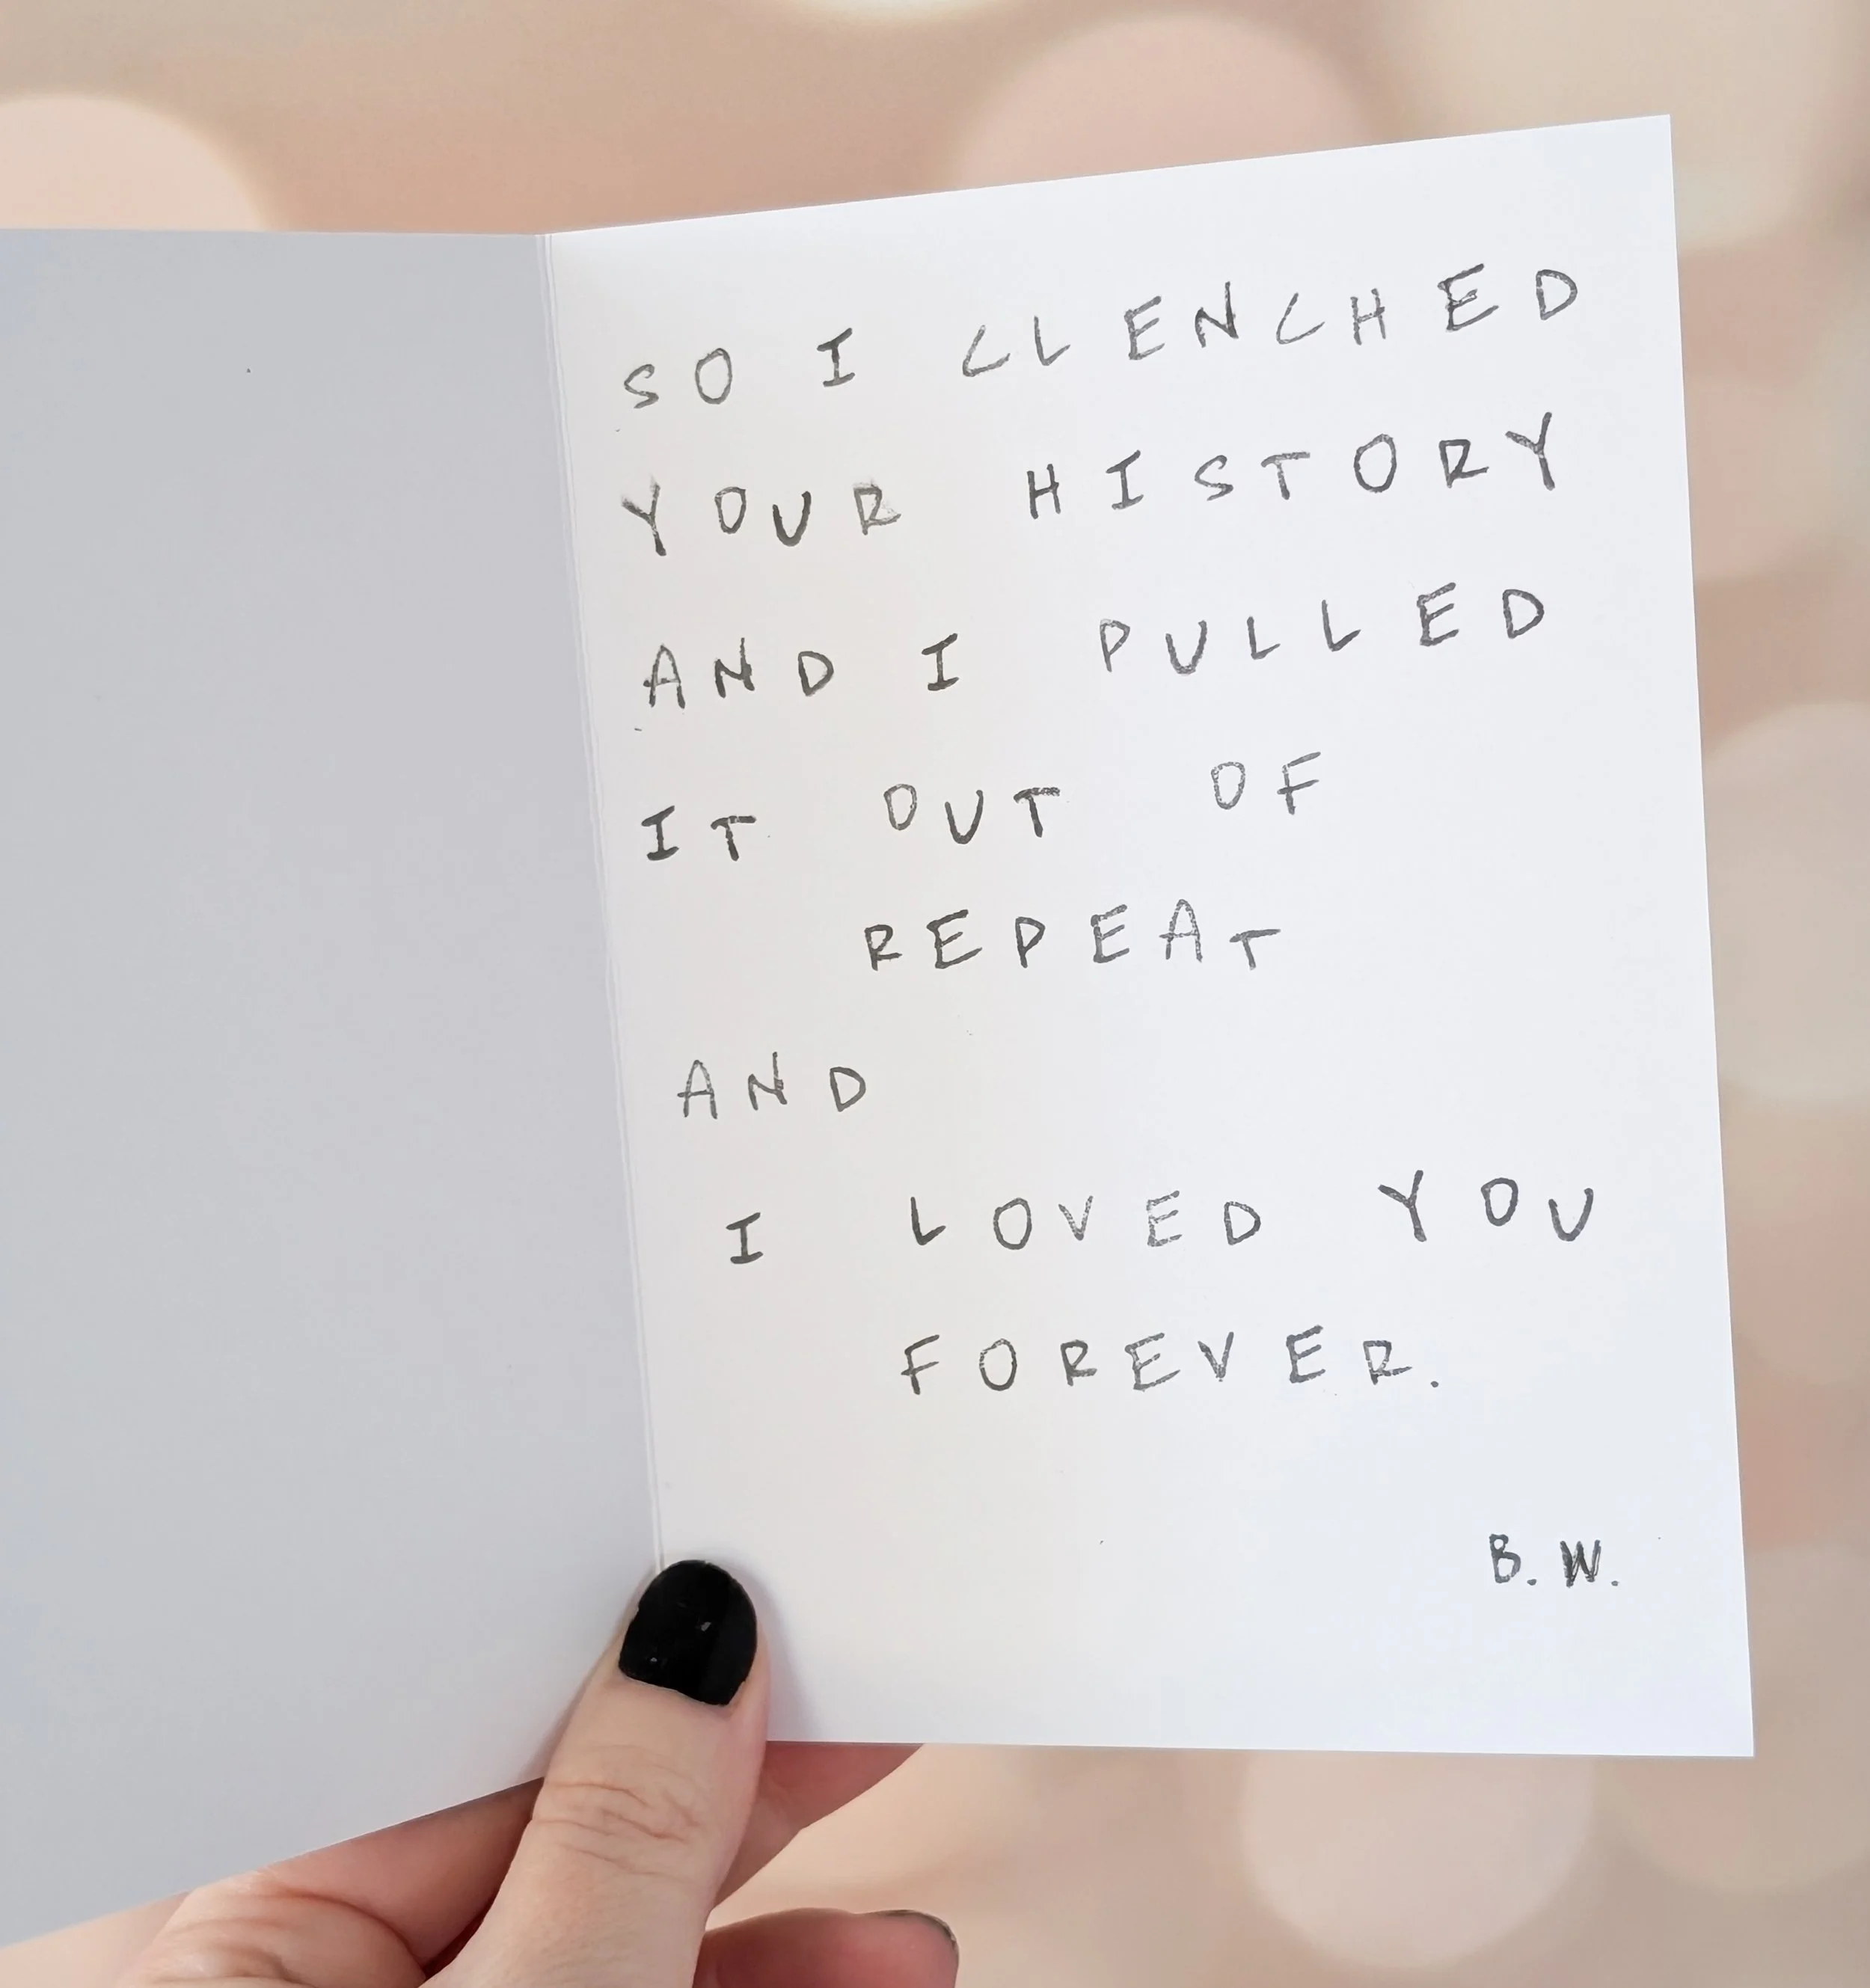 SO I CLENCHED
YOUR HISTORY
AND I PULLED
IT OUT OF
REPEAT
AND
I LOVED YOU
FOREVER.
B.W.